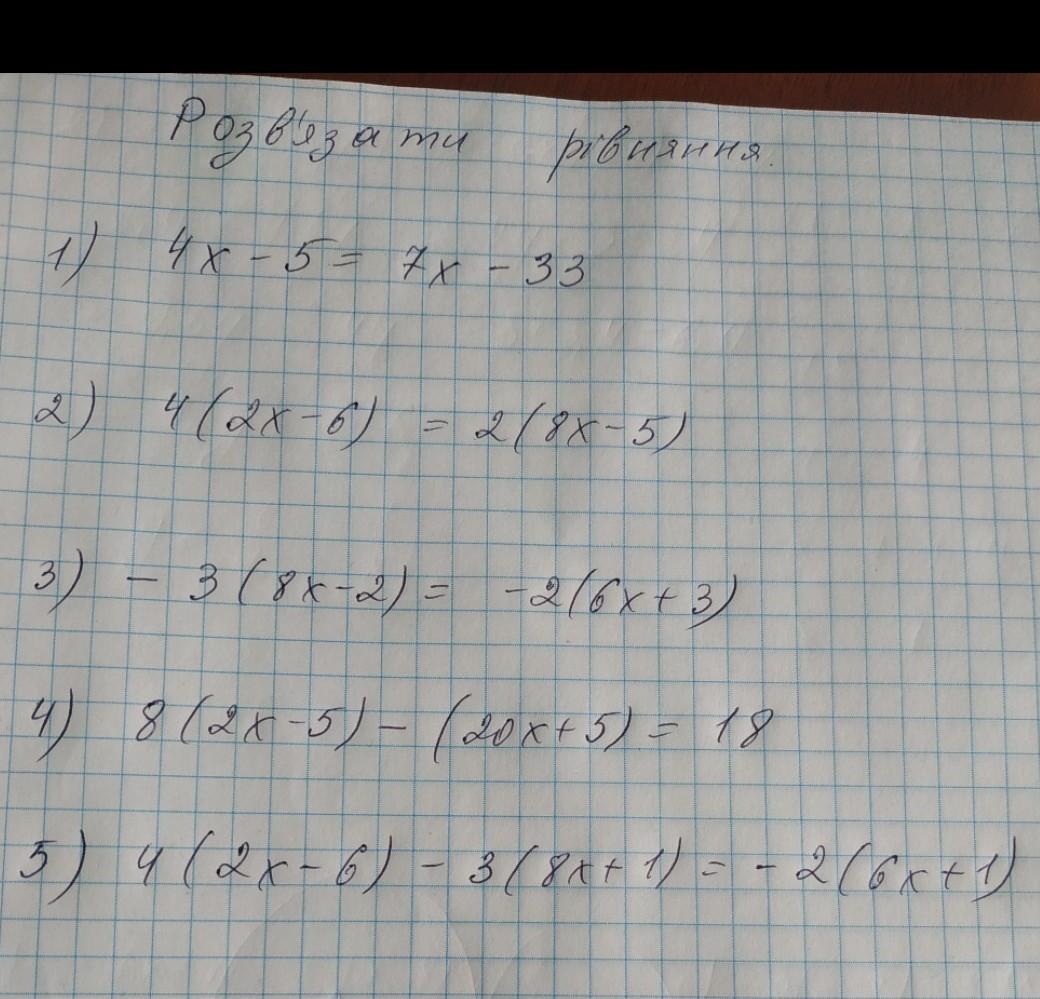 Розв'язати рівняння.
1) 4x - 5 = 7x - 33
2) 4(2x - 6) = 2(8x - 5)
3) - 3(8x - 2) = -2(6x + 3)
4) 8(2x - 5) - (20x + 5) = 18
5) 4(2x - 6) - 3(8x + 1) = - 2(6x + 1)